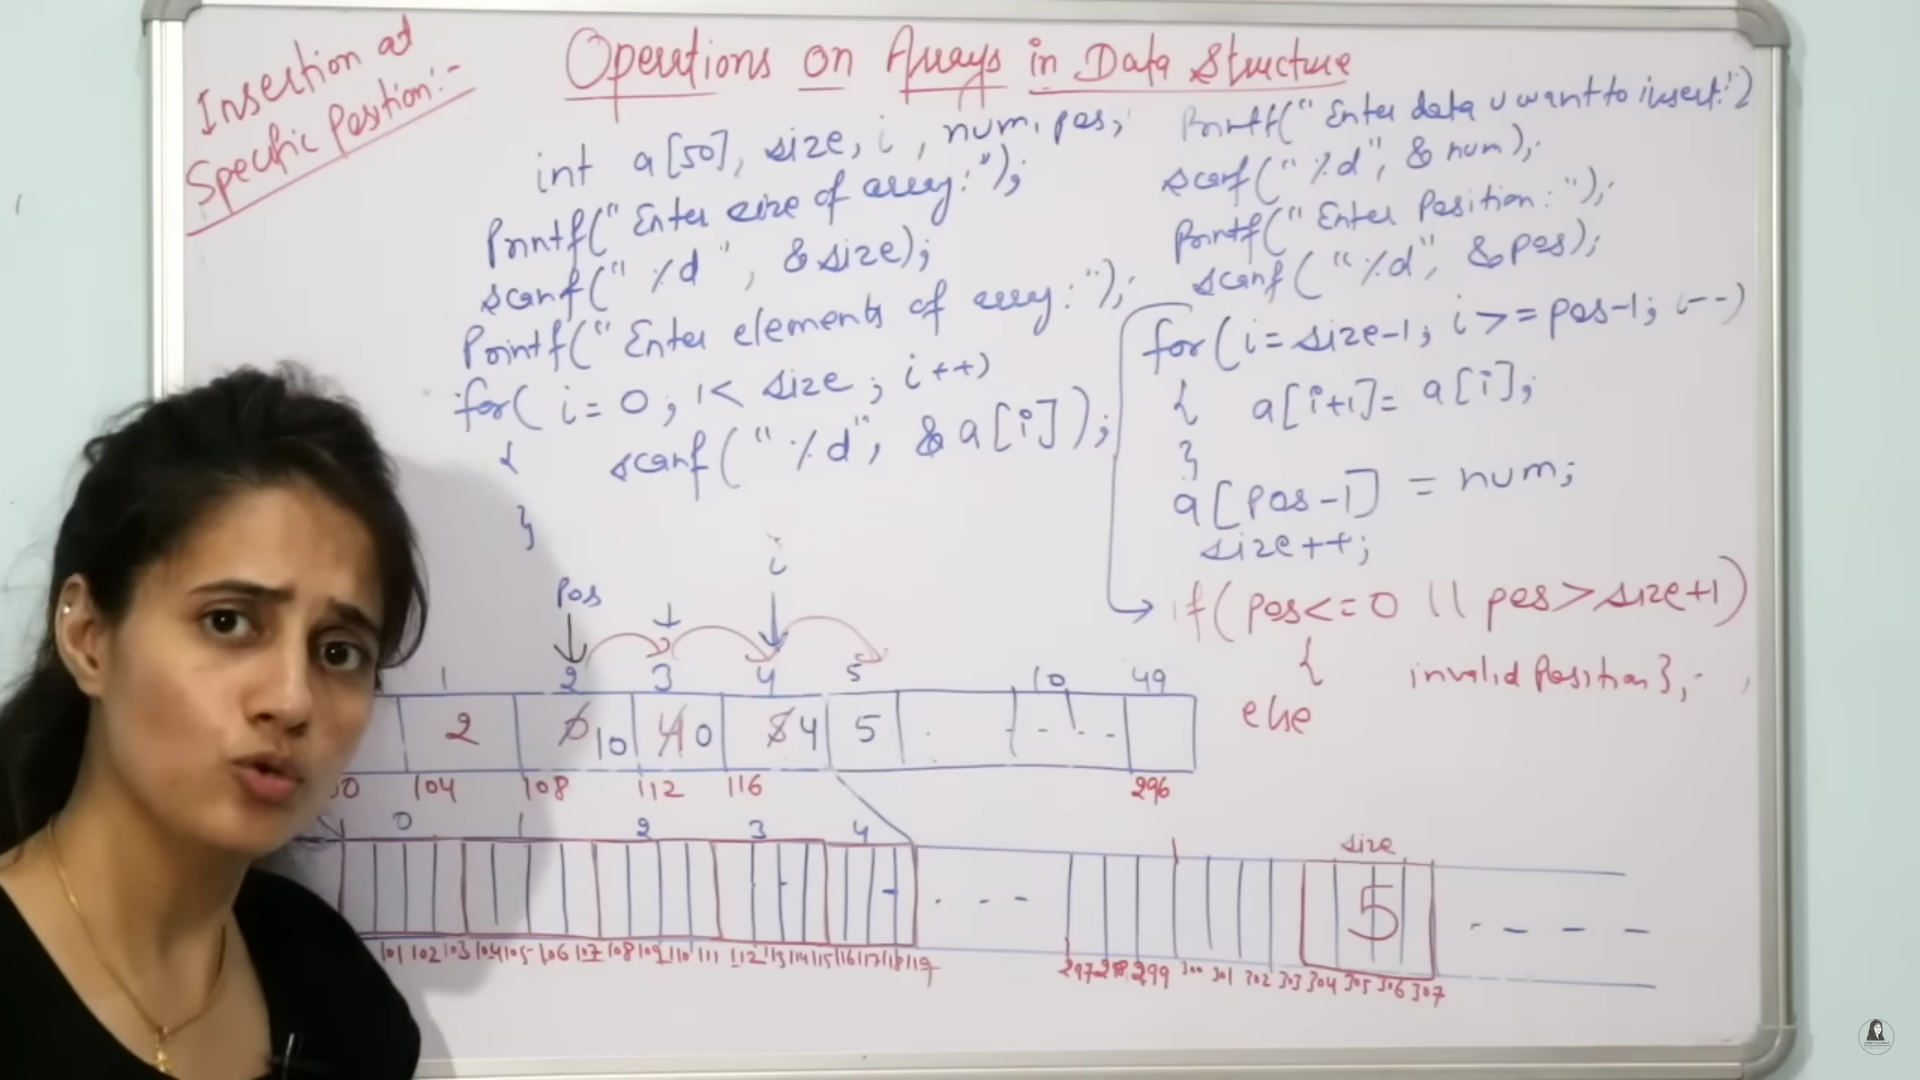 Insertion at
Specific Position:-
Operations on Arrays in Data Structure
int a[50], size, i, num, pos;
Printf("Enter size of array:");
scanf("%d", &size);
Printf("Enter elements of array:");
for(i=0; i< size; i++)
{ scanf("%d", &a[i]);
}
Printf("Enter data u want to insert:")
scanf("%d", &num);
Printf("Enter Position:");
scanf("%d", &pos);
for(i=size-1; i>=pos-1; i--)
{ a[i+1]=a[i];
}
a[pos-1] = num;
size++;
if(pos<=0 || pos>size+1)
{ invalid Position};
else
i
Pos
1 2 3 4 5 10 49
2 0 10 4 0 5 4 5
104 108 112 116 296
0 1 2 3 4
size
5
101 102 103 104 105 106 107 108 109 110 111 112 113 114 115 116 117 118 119
297 298 299 300 301 302 303 304 305 306 307